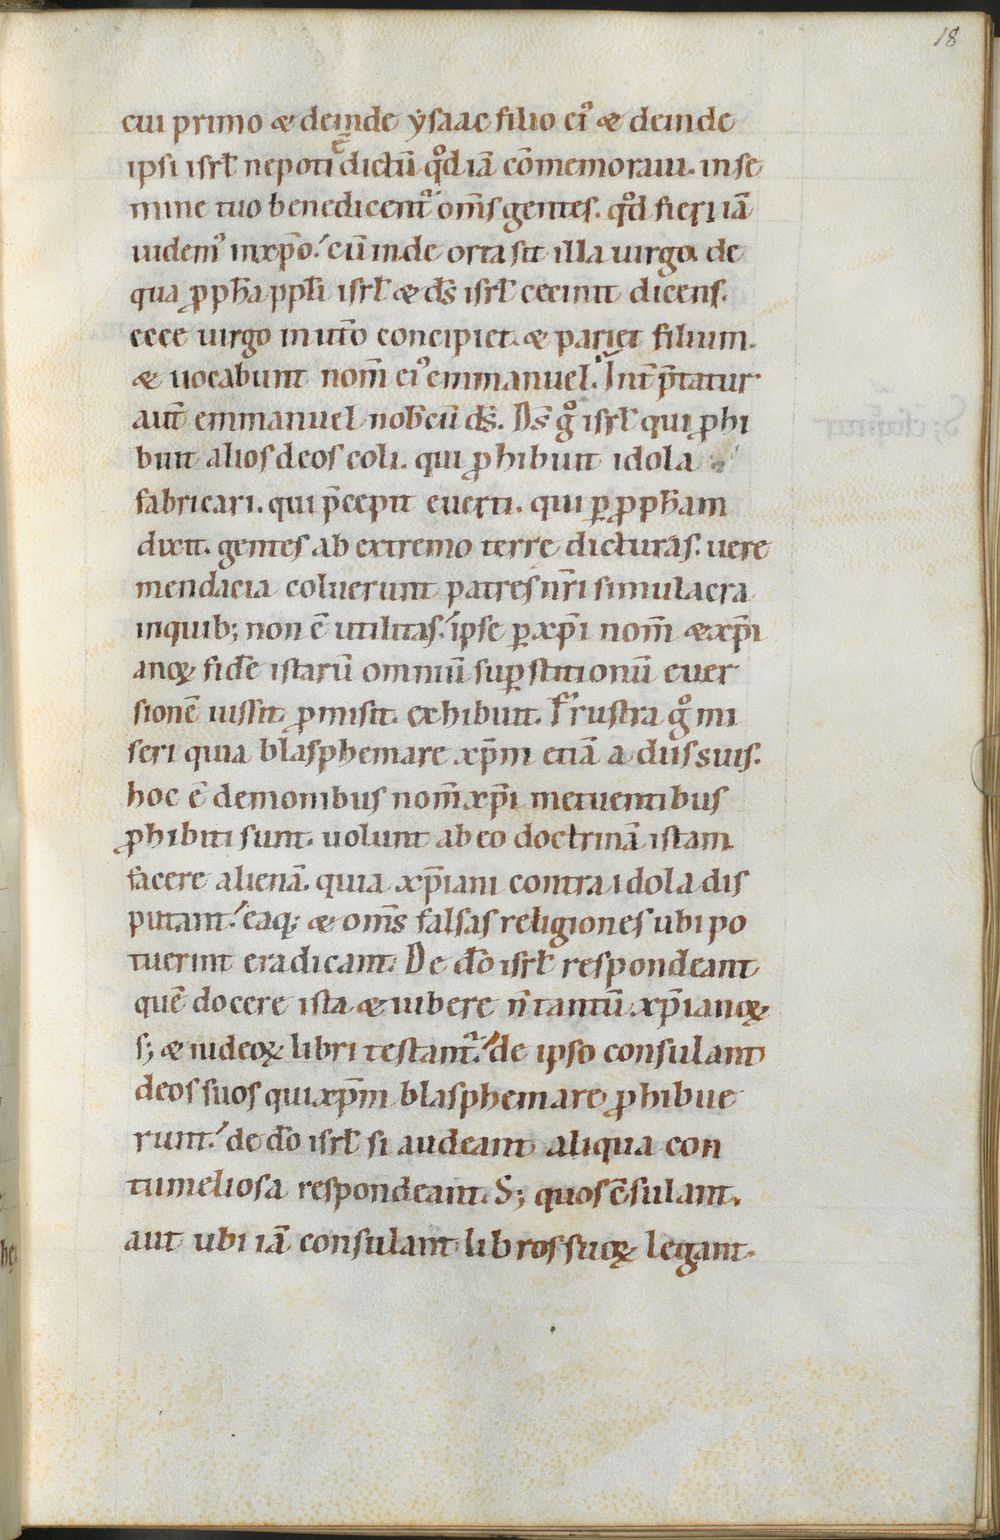 18
cui primo & deinde ẏsaac filio ei᾽ & deinde
ipsi isrł nepoti ē dictū qͦd iā cōmemoraui. in se
mine tuo benedicent᷑ om̄s gentes. qͦd fieri iā
uidem᾽ in xp̄o. cū inde orta sit illa uirgo. de
qua ꝓpħa ppłi isrł & ds̄ isrł cecinit dicens.
ecce uirgo in utō concipiet. & pariet filium.
& uocabunt nom̄ ei᾽ emmanuel. Int̄p̄tatur
aut̄ emmanuel nob̄cū ds̄. Ds̄ gͦ isrł qui ꝓhi
buit alios deos coli. qui ꝓhibuit idola
fabricari. qui p̄cepit euerti. qui ꝑ ꝓpħam
dixit. gentes ab extremo terre dicturas. uere
mendacia coluerunt patres nr̄i simulacra
in quib; non ē utilitas. ipse ꝑ xp̄i nom̄ & xp̄i
anoꝝ fidē istarū omniū suꝑstitionū euer
sionē iussit. ꝓmisit. exhibuit. Frustra gͦ mi
seri quia blasphemare xp̄m etiā a diis suis.
hoc ē demonibus nom̄ xp̄i metuentibus
ꝓhibiti sunt. uolunt ab eo doctrinā istam
facere alienā. quia xp̄iani contra idola dis
putant. eaq; & om̄s falsas religiones ubi po
tuerint eradicant. De dō isrł respondeant
quē docere ista & iubere n̄ tantū xp̄ianoꝝ
s; & iudeoꝝ libri testant᷑. de ipso consulant
deos suos qui xp̄m blasphemare ꝓhibue
runt. de dō isrł si audeant aliqua con
tumeliosa respondeant. S; quos c̄sulant.
aut ubi iā consulant libros suoꝝ legant.